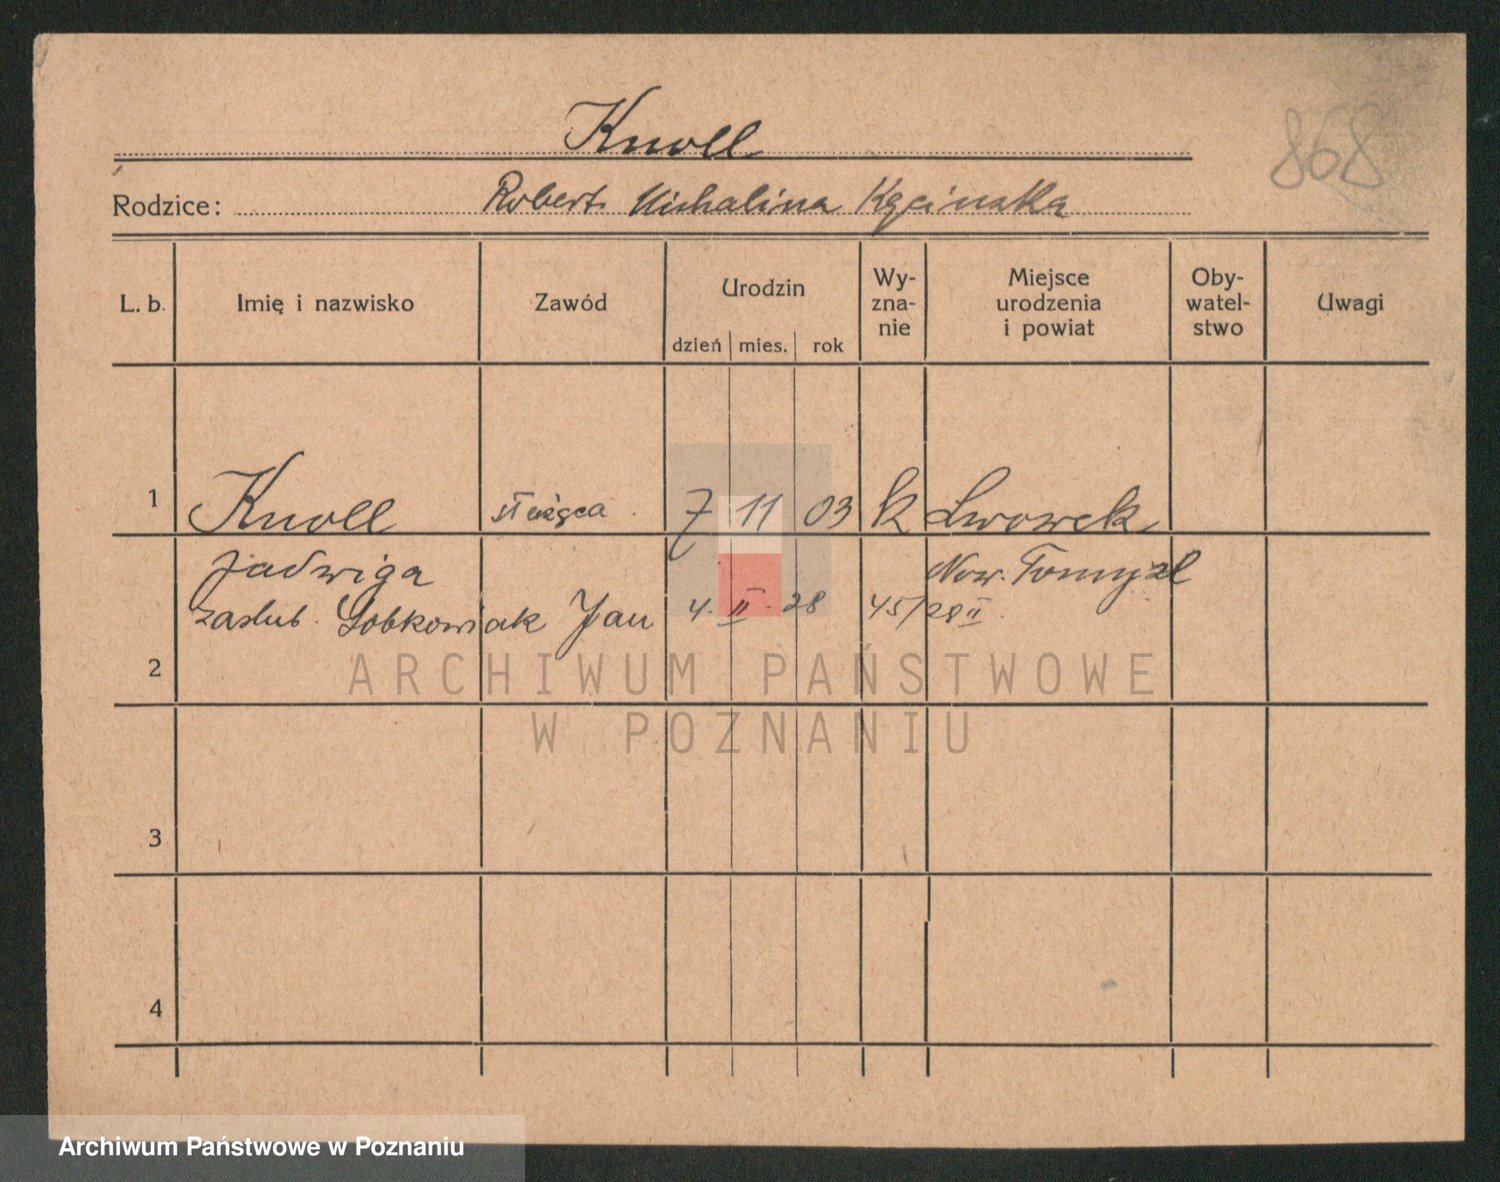 Knoll
868
Rodzice: Robert Michalina Kęcinska
L. b. Imię i nazwisko Zawód Urodzin dzień mies. rok Wy-zna-nie Miejsce urodzenia i powiat Oby-watel-stwo Uwagi
1 Knoll służąca 7 11 03 k Lwowek
Jadwiga Now. Tomyśl
zaślub. Łobkowiak Jan 4. II. 28 45/28 II.
2
3
4
ARCHIWUM PAŃSTWOWE
W POZNANIU
Archiwum Państwowe w Poznaniu